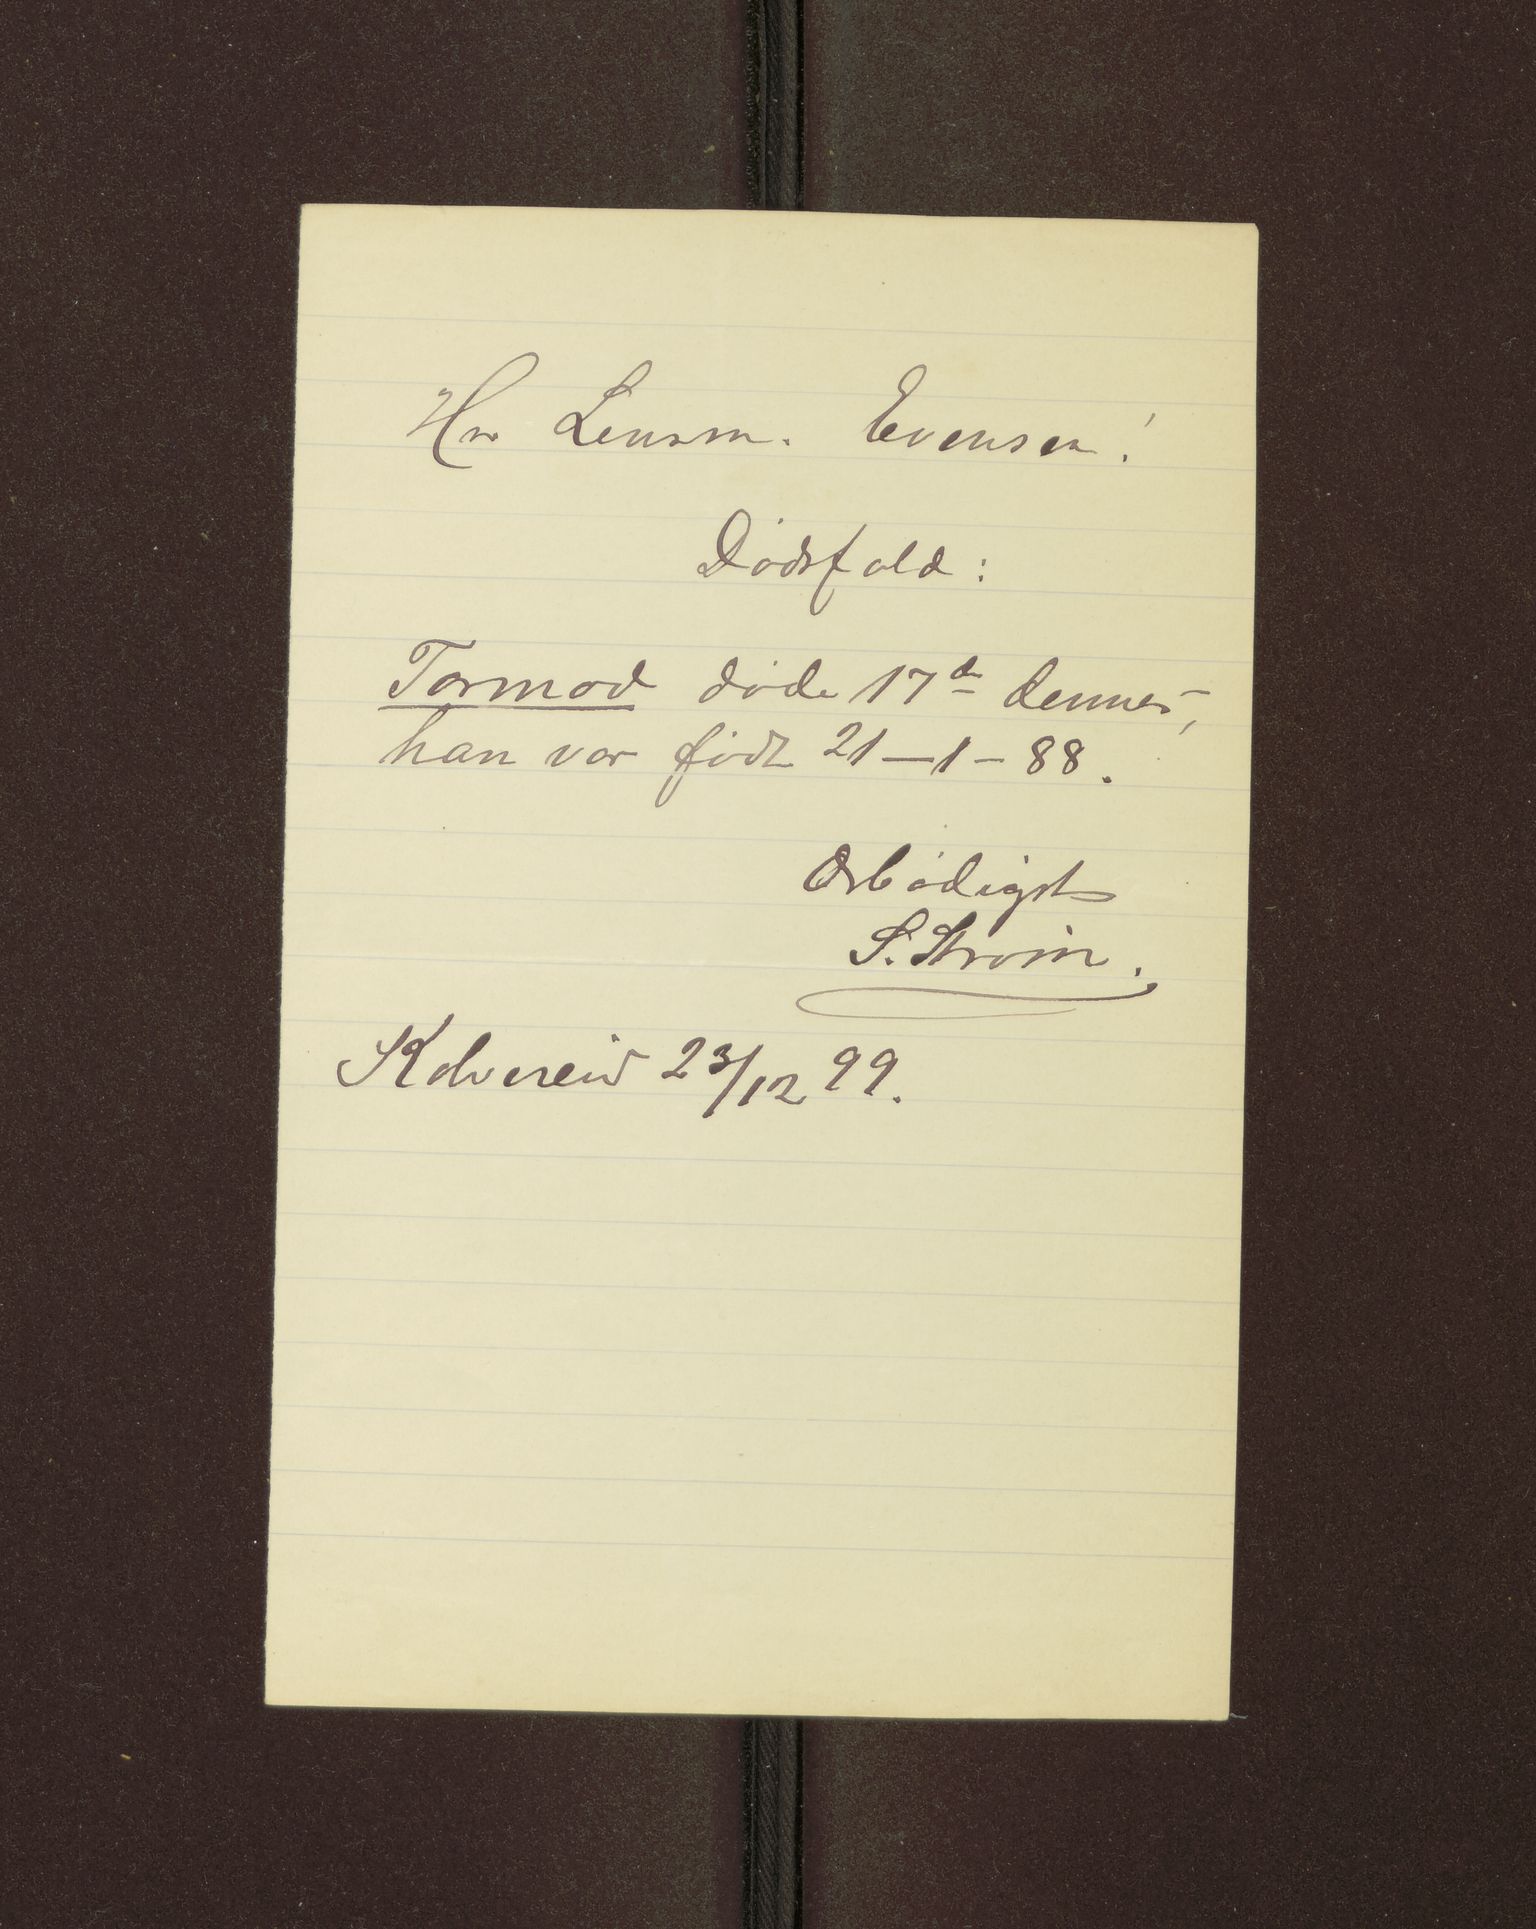 Hr Lensm. Evensen!
Dødsfald:
Tormod døde 17de dennes,
han var født 21-1-88.
Ærbødigst
S. Strøm.
Kolvereid 23/12 99.